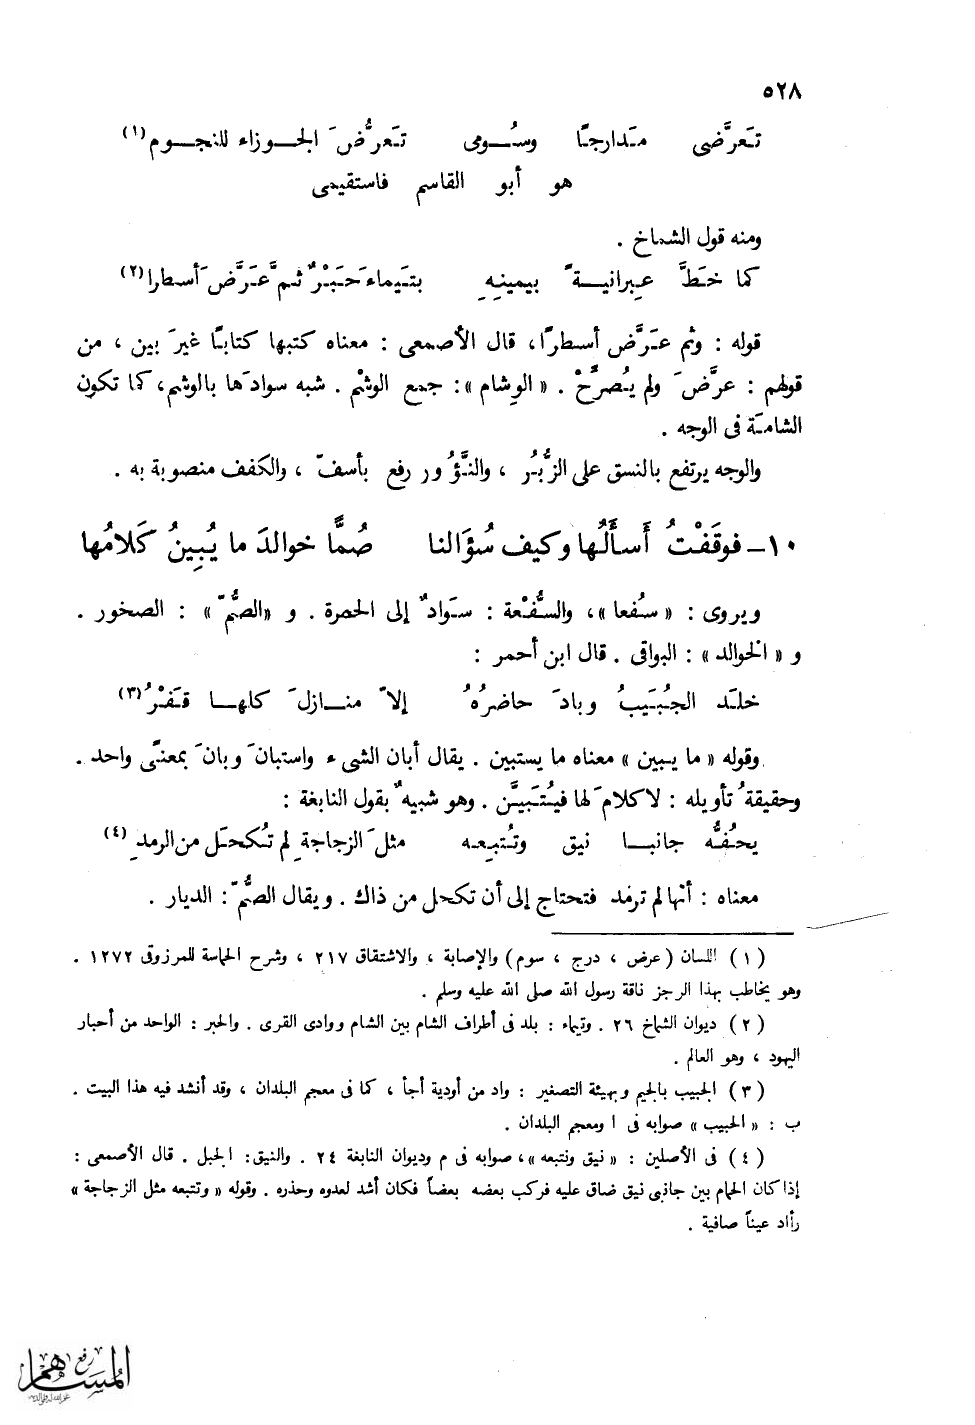 ٥٢٨
تَعرَّضى مَدارجًا وسُومى تَعرُّضَ الجوزاء للنجوم (١)
هو أبو القاسم فاستقيمى
ومنه قول الشماخ .
كما خَطَّ عِبرانيةً بيمينِهِ بتَيماءَ حَبْرٌ ثم عَرَّضَ أسطرا (٢)
قوله : وثم عَرَّض أسطرًا، قال الأصمعى : معناه كتبها كتابًا غيرَ بين ، من
قولهم : عرَّضَ ولم يُصرِّحْ . « الوِشام »: جمع الوشْم . شبه سوادَها بالوشم، كما تكون
الشامَة فى الوجه .
والوجه يرتفع بالنسق على الزُّبُر ، والنَّؤُور رفع بأسفّ ، والكفف منصوبة به .
١٠– فوقَفْتُ أَسأَلُها وكيف سُؤَالنا صُمًّا خوالدَ ما يُبِينُ كَلامُها
ويروى : « سُفعا »، والسُّفْعة : سَوادٌ إلى الحمرة . و « الصُّمّ » : الصخور .
و « الخوالد » : البواقى . قال ابن أحمر :
خلَد الجُبَيبُ وبادَ حاضرُهُ إلاّ منازلَ كلها قَفْرُ (٣)
وقوله « ما يبين » معناه ما يستبين . يقال أبان الشىء واستبانَ وبانَ بمعنًى واحد .
وحقيقةُ تأويله : لا كلامَ لها فيُتَبيَّن . وهو شبيهٌ بقول النابغة :
يحُفُّه جانبا نيق وتُتبِعه مثلَ الزجاجةِ لم تُكحَل من الرمدِ (٤)
معناه : أنها لم ترمَد فتحتاج إلى أن تكحل من ذاك . ويقال الصُّمّ : الديار .
(١) اللسان (عرض ، درج ، سوم) والإصابة ، والاشتقاق ٢١٧ ، وشرح الحماسة للمرزوقى ١٢٧٢ .
وهو يخاطب بهذا الرجز ناقة رسول الله صلى الله عليه وسلم .
(٢) ديوان الشماخ ٢٦ . وتيماء : بلد فى أطراف الشام بين الشام ووادى القرى . والحبر : الواحد من أحبار
اليهود ، وهو العالم .
(٣) الجبيب بالجيم وبهيئة التصغير : واد من أودية أجأ ، كما فى معجم البلدان ، وقد أنشد فيه هذا البيت .
ب : « الحبيب » صوابه فى ا ومعجم البلدان .
(٤) فى الأصلين : « نيق ونتبعه »، صوابه فى م وديوان النابغة ٢٤ . والنيق: الجبل . قال الأصمعى :
إذا كان الحمام بين جانبى نيق ضاق عليه فركب بعضه بعضاً فكان أشد لعدوه وحذره . وقوله « وتتبعه مثل الزجاجة »
رأاد عيناً صافية .